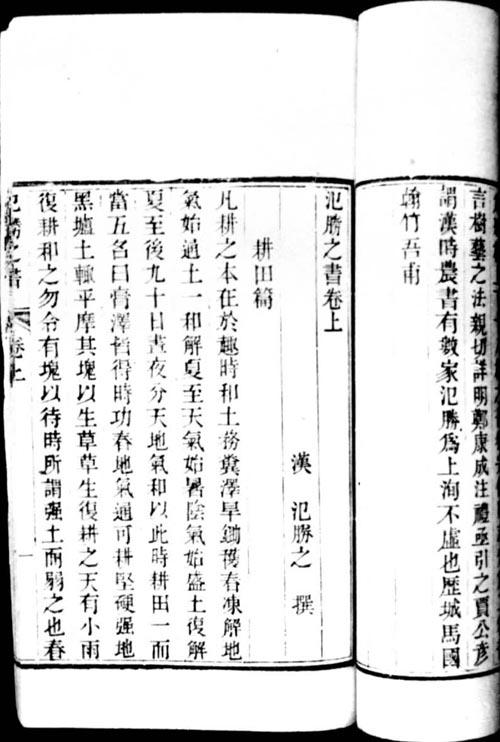 言樹藝之法親切詳明鄭康成注禮亟引之賈公彥
謂漢時農書有數家氾勝爲上洵不虛也歷城馬國
翰竹吾甫
氾勝之書卷上
漢 氾勝之 撰
耕田篇
凡耕之本在於趣時和土務糞澤早鋤穫春凍解地
氣始通土一和解夏至天氣始暑陰氣始盛土復解
夏至後九十日晝夜分天地氣和以此時耕田一而
當五名曰膏澤皆得時功春地氣通可耕堅硬强地
黑壚土輒平摩其塊以生草草生復耕之天有小雨
復耕和之勿令有塊以待時所謂强土而弱之也春
氾勝之書 卷上 一